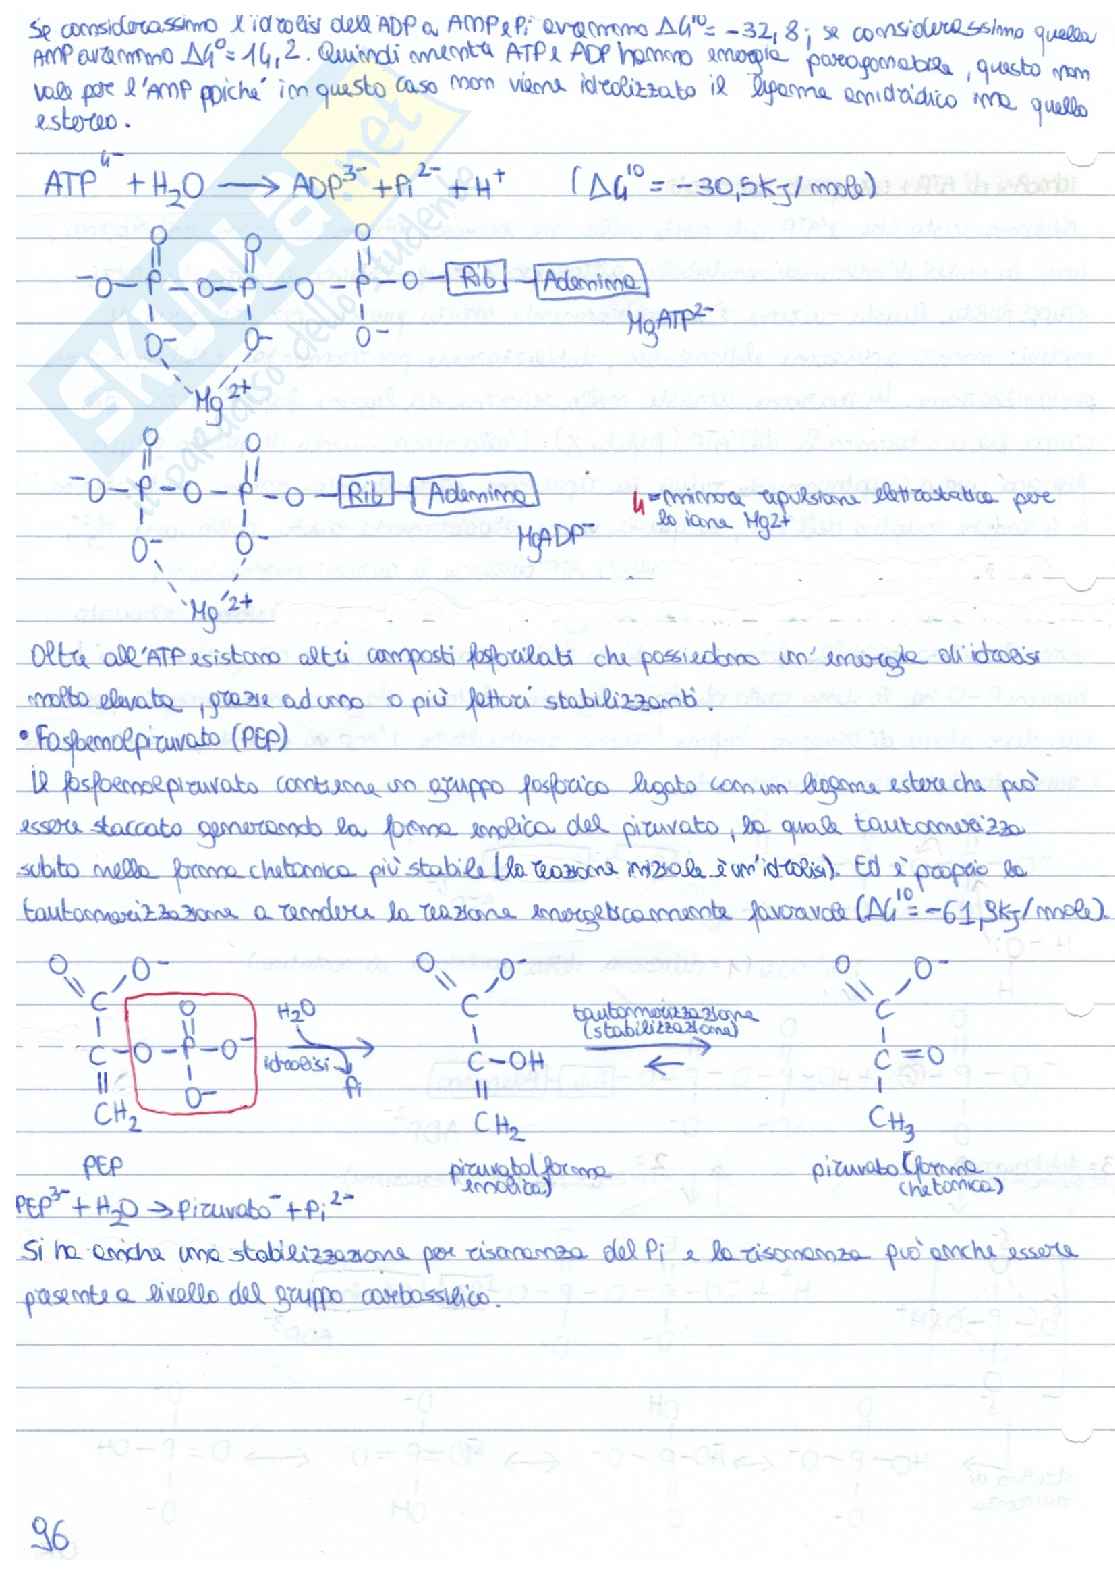 Se considerassimo l'idrolisi dell'ADP a AMP e Pi avremmo ΔG'⁰= -32,8; se considerassimo quella
AMP avremmo ΔG'⁰= 14,2. Quindi mentre ATP e ADP hanno energia paragonabile, questo non
vale per l'AMP poiché in questo caso non viene idrolizzato il legame anidridico ma quello
estereo.
ATP⁴⁻ + H₂O → ADP³⁻ + Pi²⁻ + H⁺ (ΔG'⁰ = -30,5KJ/mole)
O O O
⁻O-P-O-P-O-P-O-Rib-Adenina
O⁻ O⁻ O⁻
MgATP²⁻
Mg²⁺
O O
⁻O-P-O-P-O-Rib-Adenina
4=minore repulsione elettrostatica per
lo ione Mg2+
O⁻ O⁻
MgADP⁻
Mg²⁺
Oltre all'ATP esistono altri composti fosforilati che possiedono un'energia di idrolisi
molto elevata, grazie ad uno o più fattori stabilizzanti.
• Fosfoenolpiruvato (PEP)
Il fosfoenolpiruvato contiene un gruppo fosforico legato con un legame estere che può
essere staccato generando la forma enolica del piruvato, la quale tautomerizza
subito nella forma chetonica più stabile (la reazione iniziale è un'idrolisi). Ed è proprio la
tautomerizzazione a rendere la reazione energeticamente favorevole (ΔG'⁰= -61,9KJ/mole).
O O⁻ O O⁻ O O⁻
C O H₂O C tautomerizzazione C
(stabilizzazione)
C-O-P-O⁻ idrolisi Pi C-OH C=O
O⁻
CH₂ CH₂ CH₃
PEP piruvato (forma enolica) piruvato (forma chetonica)
PEP³⁻ + H₂O → Piruvato⁻ + Pi²⁻
Si ha anche una stabilizzazione per risonanza del Pi e la risonanza può anche essere
presente a livello del gruppo carbossilico.
96
SKUOLA.net
il paradiso dello studente